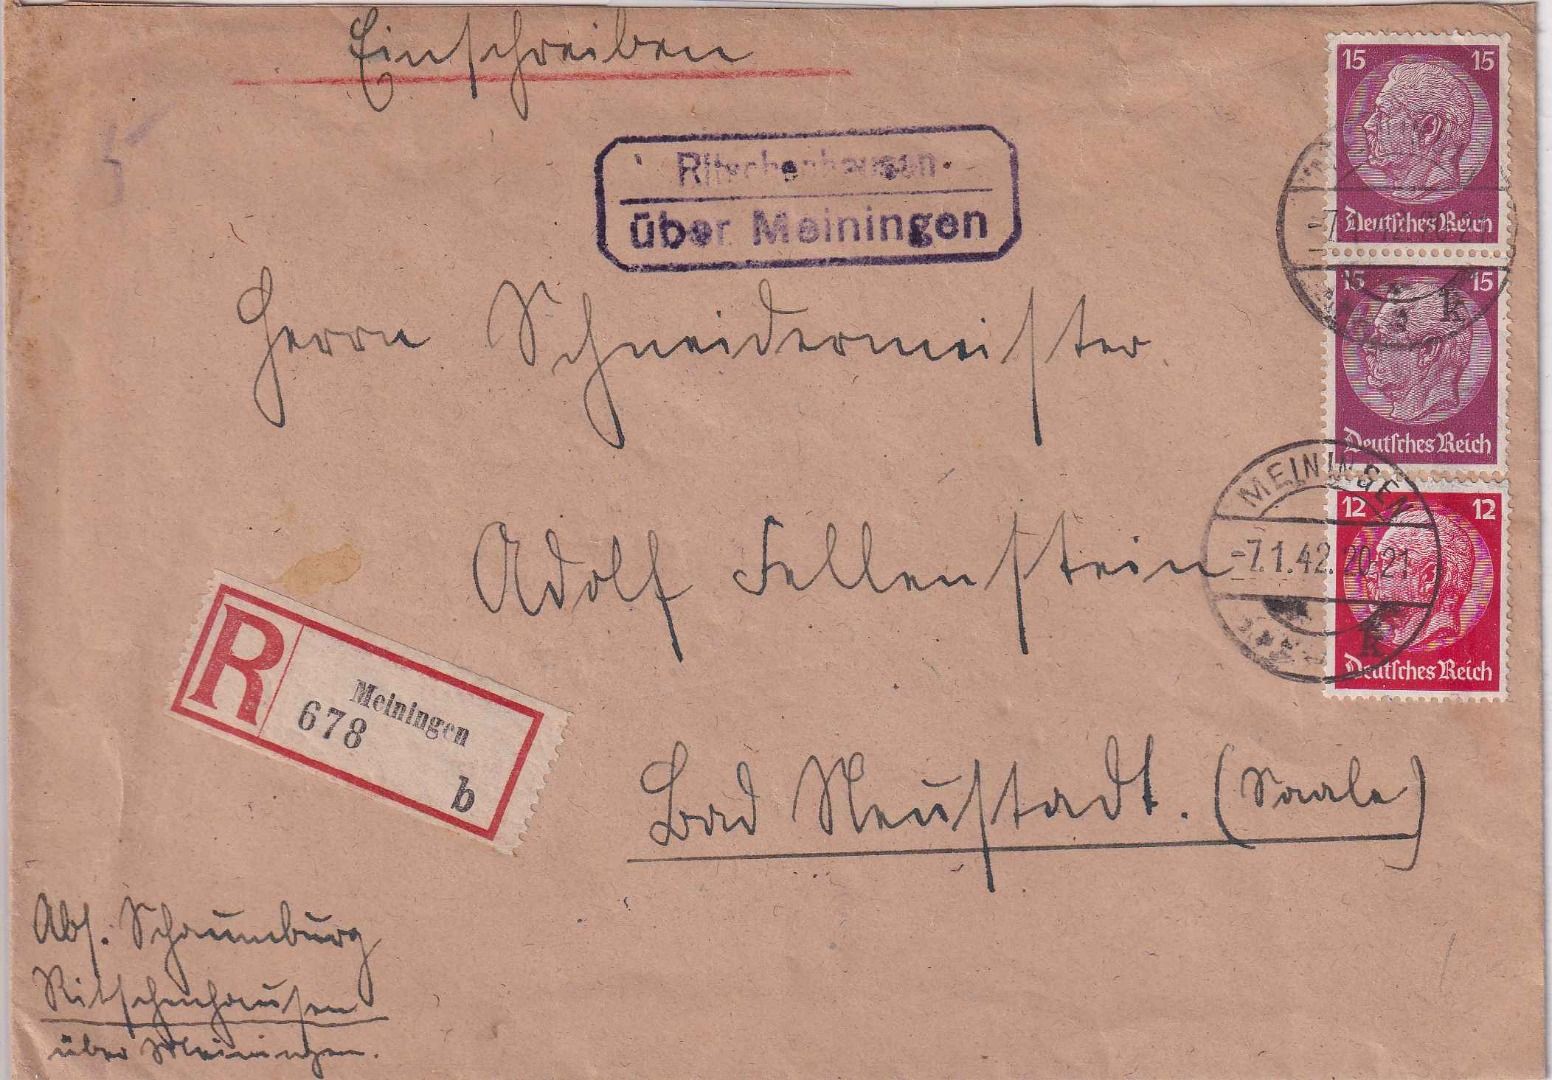 Einschreiben
Ritschenhausen
über Meiningen
15 15
Deutsches Reich
15 15
Deutsches Reich
k
12 12
Deutsches Reich
MEININGEN
-7.1.42.20-21
k
Herrn Schneidermeister
Adolf Fellenstein
Bad Neustadt. (Saale)
R
Meiningen
678
b
Abs. Schaumburg
Ritschenhausen
über Meiningen.